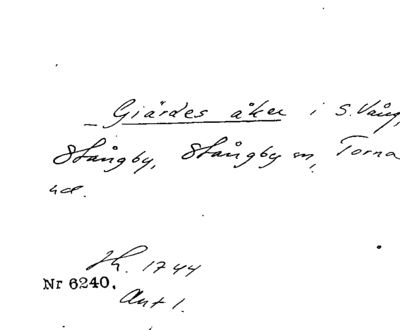 _ Giärdes åker i S. Vång,
Stångby, Stångby sn, Torna
hd.
Jh. 1744
Nr 6240.
Ant 1.